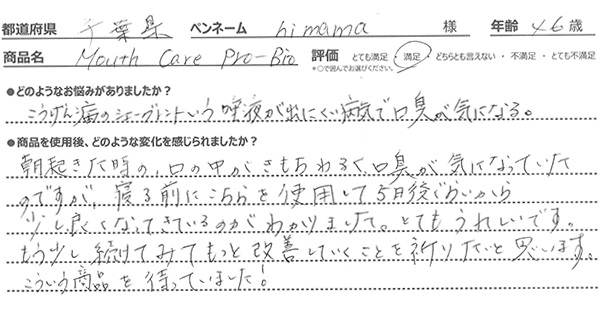 都道府県 千葉県 ペンネーム himama 様 年齢 46 歳
商品名 Mouth Care Pro-Bio 評価 とても満足・満足・どちらとも言えない・不満足・とても不満足
*○で囲んでお選びください。
●どのようなお悩みがありましたか？
こうげん病のシェーグレントいう唾液が出にくい病気で口臭が気になる。
●商品を使用後、どのような変化を感じられましたか？
朝起きた時の、口の中がきもちわるく口臭が気になっていた
のですが、寝る前にこちらを使用して5日後ぐらいから
少し良くなってきているのがわかりました。とてもうれしいです。
もう少し続けてみてもっと改善していくことを祈りたいと思います。
こういう商品を待っていました！